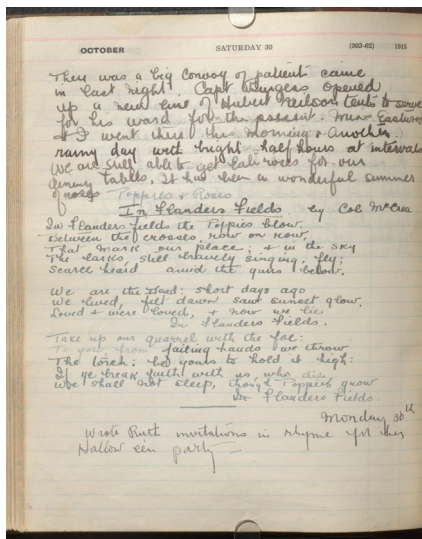 OCTOBER SATURDAY 30 (303-62) 1915
There was a big convoy of patients came
in last night. Capt Burgess opened
up a new line of Hubert Neilson tents to serve
for his ward for the present. Miss
& I went there this morning & another
rainy day with bright half hours at intervals
We are still able to get roses for our
dining tables. It has been a wonderful summer
of roses Poppies & Roses
In Flanders Fields by Col. McCrea
In Flanders fields the Poppies blow,
Between the crosses, row on row,
That mark our place; & in the sky
The larks, still bravely singing, fly;
Scarce heard amid the guns below.
We are the Dead: short days ago
We lived, felt dawn saw sunset glow,
Loved & were loved, & now we lie
In Flanders Fields.
Take up our quarrel with the foe:
To you from failing hands we throw
The torch; be yours to hold it high:
If ye break faith with us, who die
We shall not sleep, though Poppies grow
In Flanders Fields.
Monday 30th
Wrote Ruth invitations in rhyme for her
Hallow een party —